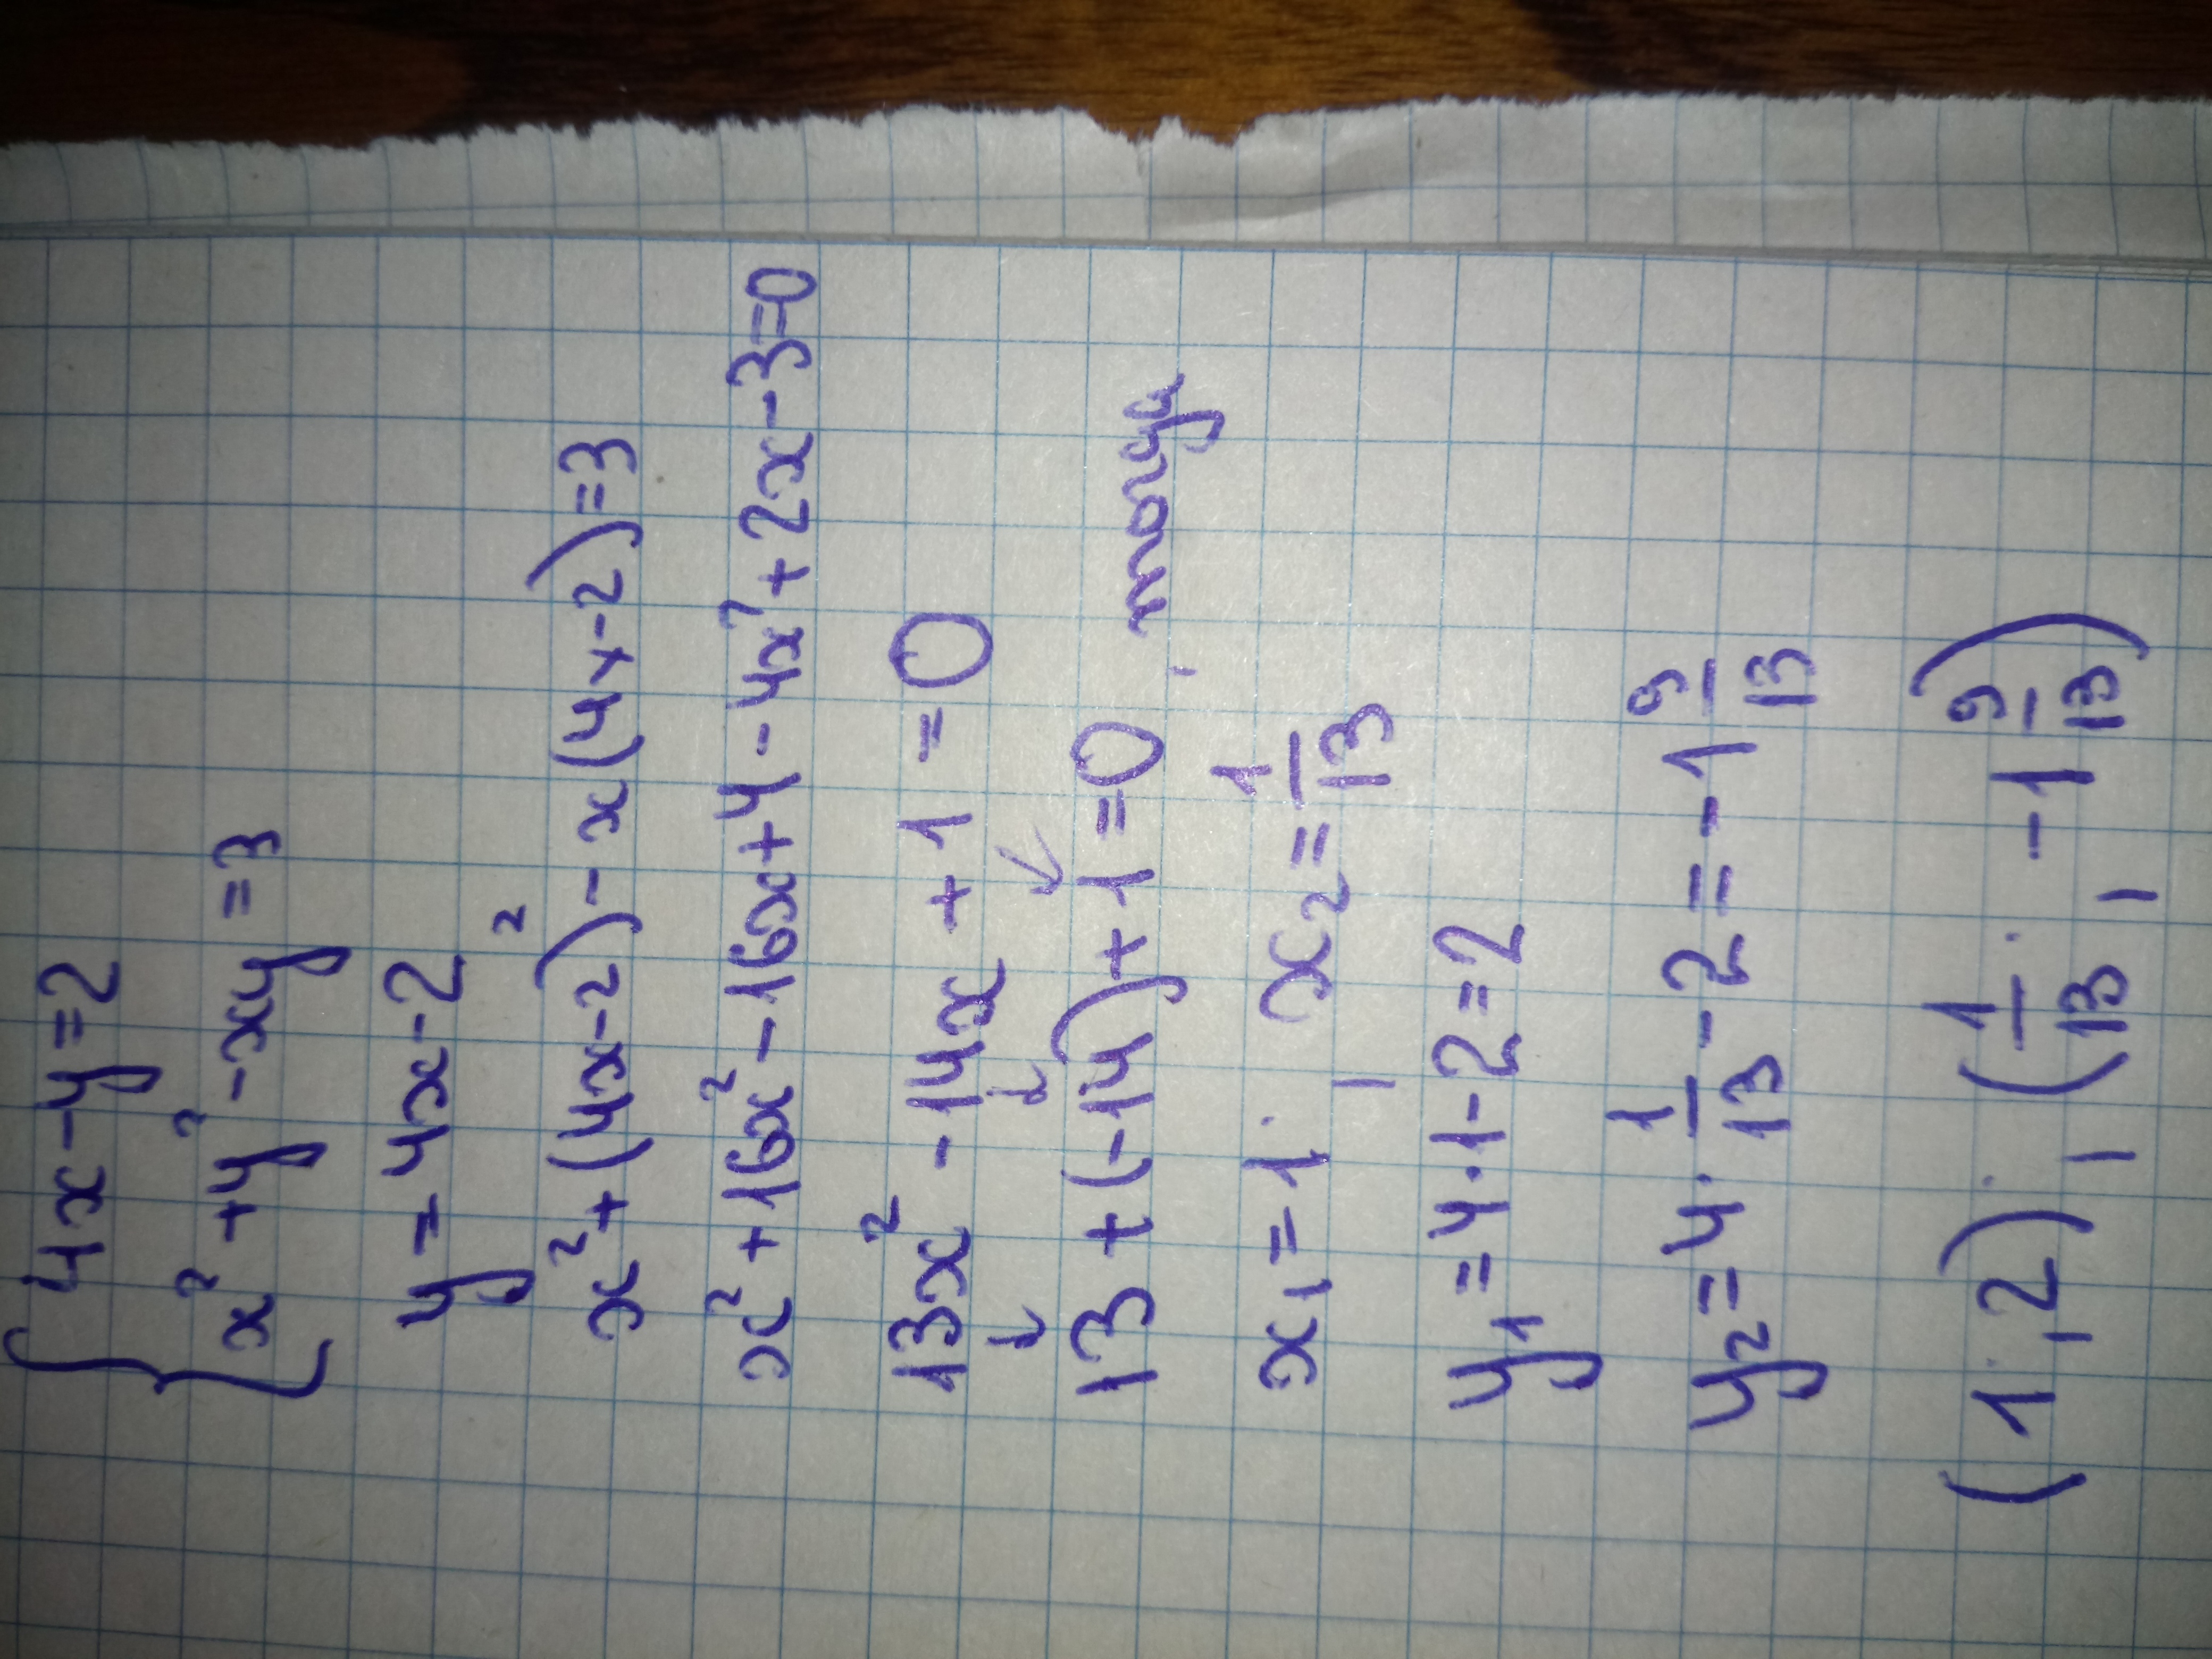 { 4x - y = 2
x² + y² - xy = 3
y = 4x - 2
x² + (4x-2)² - x(4x-2) = 3
x² + 16x² - 16x + 4 - 4x² + 2x - 3 = 0
13x² - 14x + 1 = 0
13 + (-14) + 1 = 0, тогда
x₁ = 1; x₂ = 1/13
y₁ = 4·1 - 2 = 2
y₂ = 4·1/13 - 2 = -1 9/13
(1; 2); (1/13; -1 9/13)